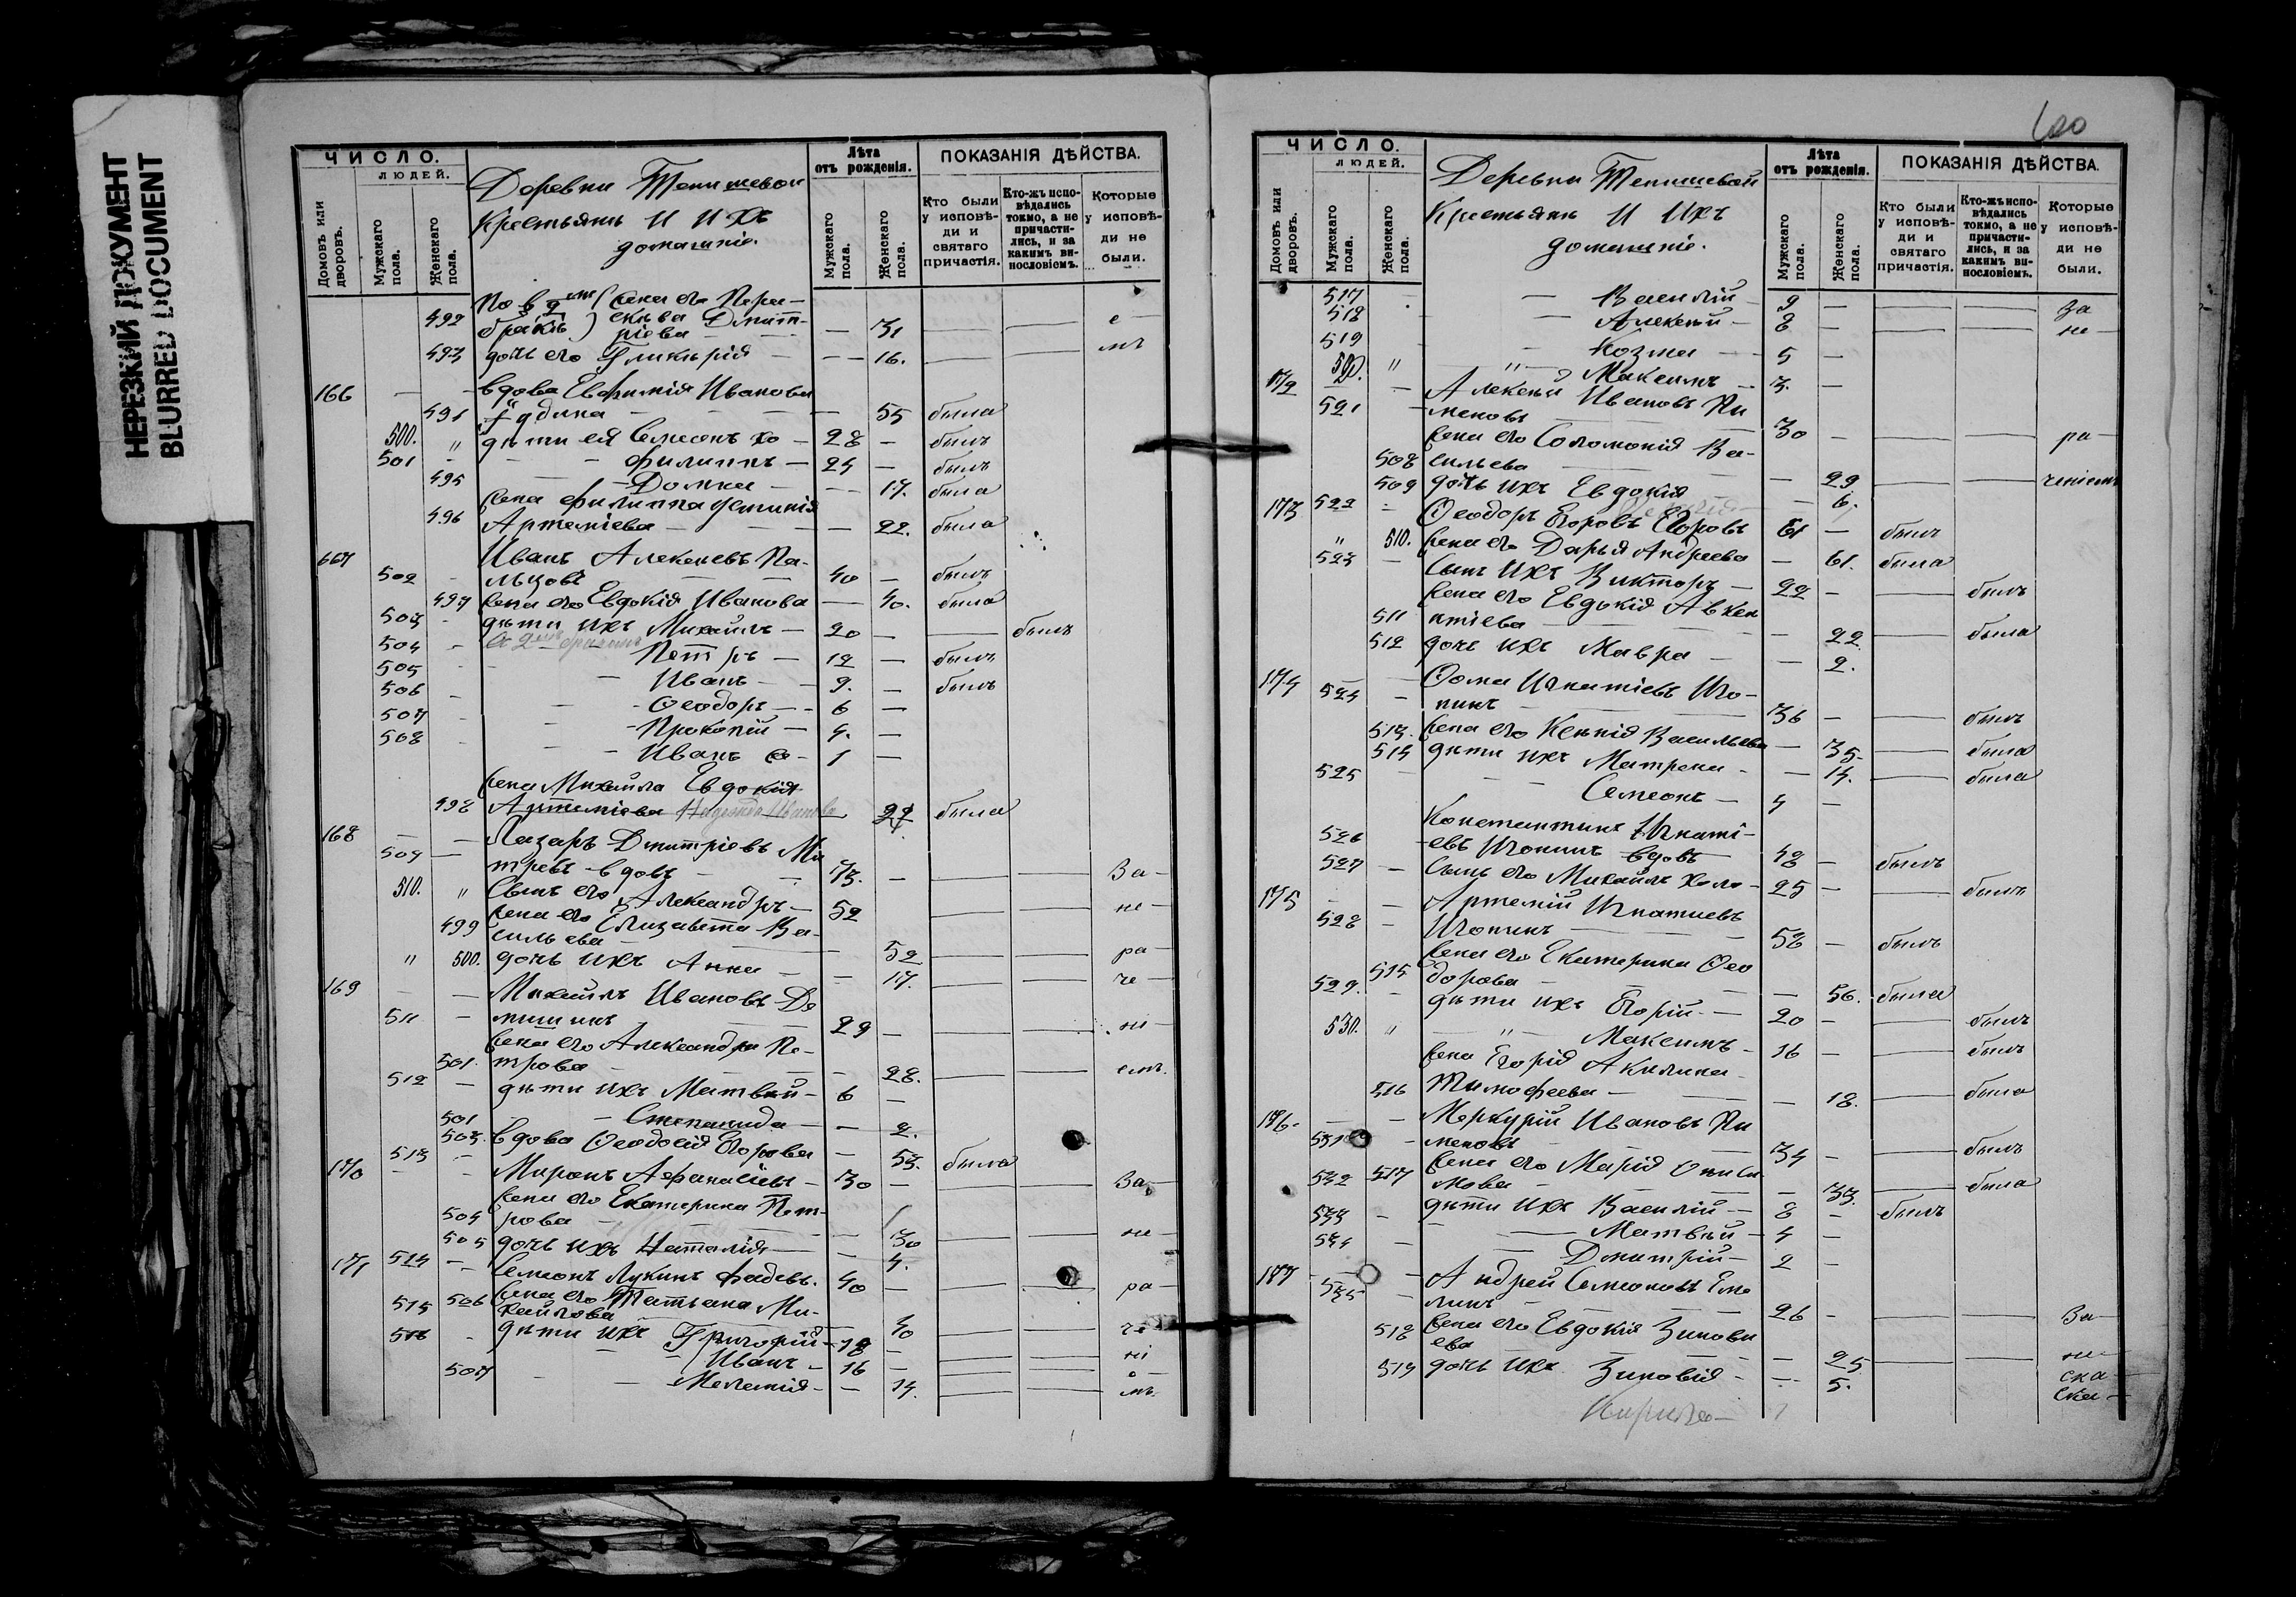 НЕРЕЗКИЙ ДОКУМЕНТ
BLURRED DOCUMENT
ЧИСЛО.
ЛЮДЕЙ.
Домовъ или дворовъ.
Мужскаго пола.
Женскаго пола.
Деревни Тенишевой
Крестьянъ и ихъ
домашніе.
Лѣта отъ рожденія.
Мужскаго пола.
Женскаго пола.
ПОКАЗАНІЯ ДѢЙСТВА.
Кто были у исповѣди и святаго причастія.
Кто-жъ исповѣдались токмо, а не причастились, и за какимъ винословіемъ.
Которые у исповѣди не были.
По 2 жена его Пара-
492 бракѣ скева Дмит-
ріева — 31 е
493 дочь его Гликерія — 16. мъ
166 вдова Евфимія Иванова
494 Юдина — 55 была
500. " дѣти ея Симеонъ хо- 28 — былъ
501 Филиппъ — 24 — былъ
495 Домна — 17. была
жена Филиппа
496 Артеміева — 22. была
167 Иванъ Алексѣевъ Па-
502 льцовъ 40 — былъ
497 жена его Евдокія Иванова — 40. была
503 дѣти ихъ Михаилъ — 20 — былъ
504 Петръ — 12 — былъ
505 Иванъ — 9. — былъ
506 Ѳеодоръ — 6 —
507 Прокопій — 4. —
508 Иванъ — 1 —
жена Михаила Евдокія
498 Артеміева Надежда Иванова 22 была
168 Лазарь Дмитріевъ Ми
509 тревъ вдовъ — 73. — За-
510. " Сынъ его Александръ — 52 не-
жена его Елизавета Ва-
499 сильева — 52 ра-
" 500. дочь ихъ Анна — 17. че-
169 Михаилъ Ивановъ Де
511 мишинъ 29 — ні-
жена его Александра Пе-
501. трова — 28. емъ.
512 дѣти ихъ Матвѣй — 6 —
501 Степанида — 2.
503. вдова Ѳеодосія Егорова — 53. была
170 513 Миронъ Аѳанасіевъ — 30 — За-
жена его Екатерина Пет-
504 рова — 30 не-
505 дочь ихъ Наталія — 4.
171 514 Симеонъ Лукинъ Фадевъ. 40 — ра-
506 жена его Татьяна Ми-
515 хайлова — 40 че
516 дѣти ихъ Григорій — 18 — ні
Иванъ — 16 — е
507 Меланія — 14. мъ.
600
ЧИСЛО.
ЛЮДЕЙ.
Домовъ или дворовъ.
Мужскаго пола.
Женскаго пола.
Деревни Тенишевой
Крестьянъ и ихъ
домашніе.
Лѣта отъ рожденія.
Мужскаго пола.
Женскаго пола.
ПОКАЗАНІЯ ДѢЙСТВА.
Кто были у исповѣди и святаго причастія.
Кто-жъ исповѣдались токмо, а не причастились, и за какимъ винословіемъ.
Которые у исповѣди не были.
517 Василій — 9 — За
518 Алексѣй — 8 — не-
519 Козма — 5 —
520. " Максимъ — 3. —
172 Алексѣй Ивановъ Пи
521 меновъ 30 — ра-
жена его Соломонія Ва-
508 сильева — 29 ченіемъ
509 дочь ихъ Евдокія — 6.
173 522 Ѳеодоръ Егоровъ Егоровъ 61 — былъ
" 510. жена его Дарья Андреева — 61. была
523 Сынъ ихъ Викторъ — 22 — былъ
жена его Евдокія Авксен
511 нтіева — 22 была
512 дочь ихъ Мавра — 2.
174 Ѳома Игнатіевъ Иго-
524 нинъ 36 — былъ
513. жена его Ксенія Васильева — 35. была
514 дѣти ихъ Матрена — 14. была
525 Симеонъ — 4 —
Константинъ Игнаті-
526 евъ Игонинъ вдовъ 48 — былъ
527 Сынъ его Михаилъ холо- 25 — былъ
175 Артемій Игнатиевъ
528 Игонинъ 58 — былъ
жена его Екатерина Ѳео
515 дорова — 56. была
529. дѣти ихъ Егорій — 20 — былъ
530. " Максимъ — 16 — былъ
жена Егорія Акилина
516 Тимофеева — 18. была
176. Меркурій Ивановъ Пи
531 меновъ 34 — былъ
жена его Марія Ониси
532 517 мова — 33. была
533 дѣти ихъ Василій — 8 — былъ
534 Матвѣй — 4 —
Дмитрій — 2 —
177 Андрей Симеоновъ Еме
535 линъ 26 — За-
жена его Евдокія Зиновь
518 ева — 25 не-
519 дочь ихъ Зиновія — 5. ска-